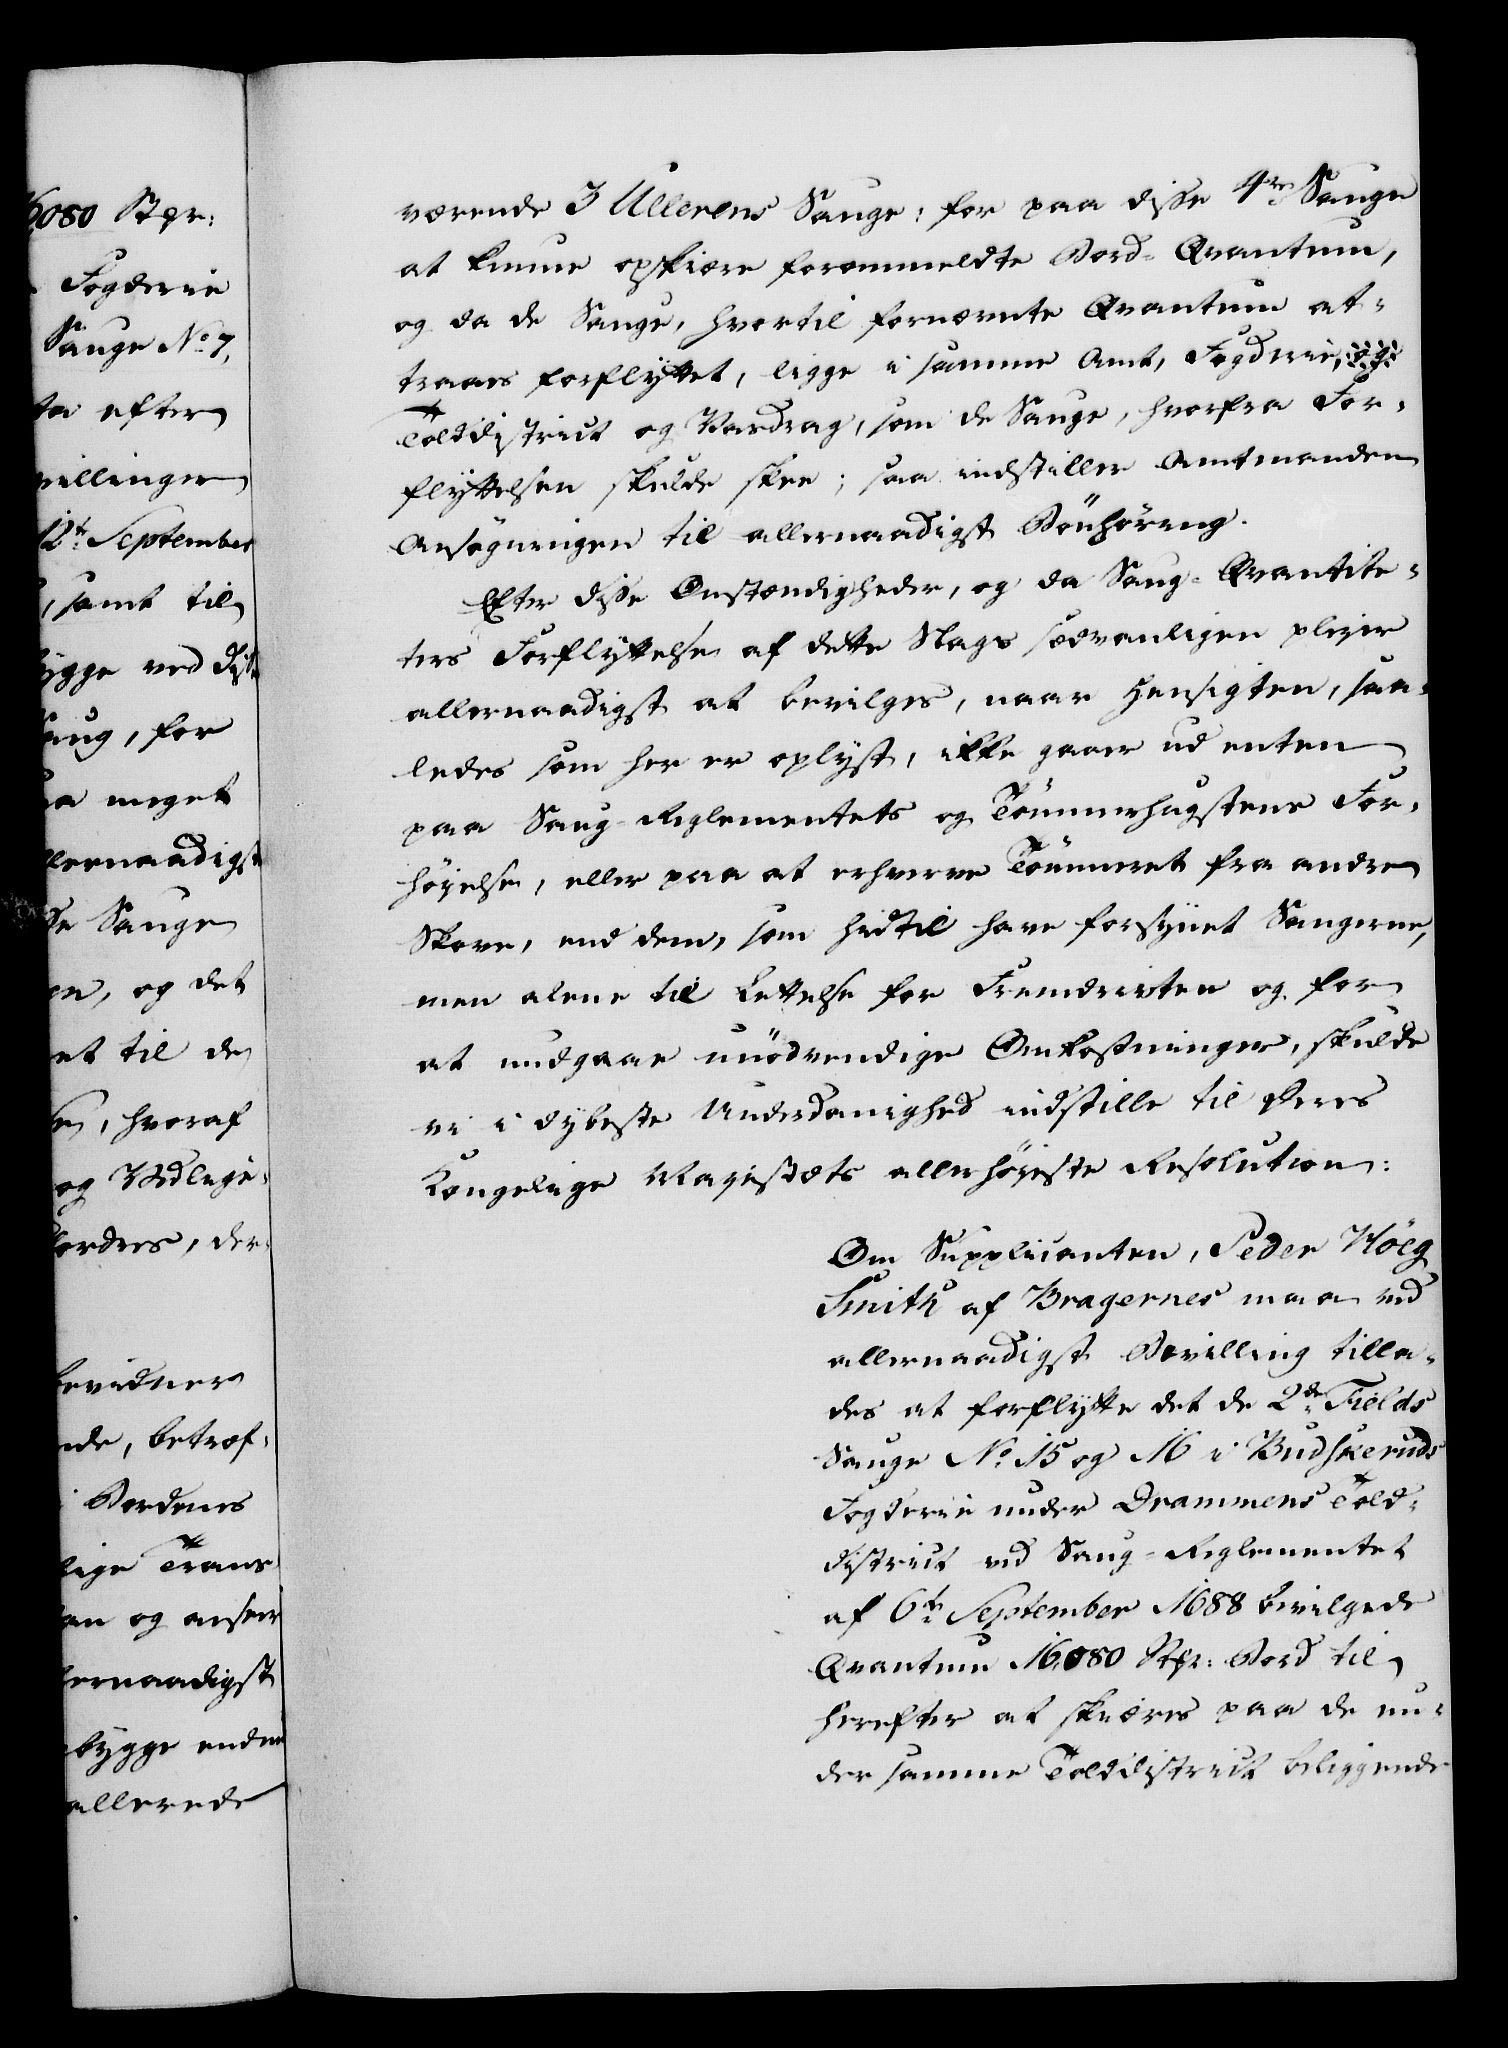 6080 Stpr:
Fogderie
Sauge No 7,
ta efter
villinger
12te September
, samt til
bygge ved disse
Saug, for
saa meget
allernaadigst
sse Sauge
en, og det
et til de
, hvoraf
og Udleje-
fordres, der-
bevidner
nde, betref-
i Bordenes
lige Trans-
an og anseer
allernaadigst
bygge endnu
allerede
værende 3 Ullerens Sauge; for paa disse 4re Sauge
at kunne opskiære forommeldte Bord-Qvantum,
og da de Sauge, hvortil fornævnte Qvantum at-
traaes forflyttet, ligge i samme Amt, Fogderie, og
Tolddistrict og Vardrag, som de Sauge, hvorfra For-
flyttelsen skulde skee; saa indstiller Amtmanden
Ansøgningen til allernaadigst Bönhöring.
Efter disse Omstændigheder, og da Saug-Qvantite-
ters Forflyttelse af dette Slags sædvanligen plejer
allernaadigst at bevilges, naar Hensigten, saa-
ledes som her er oplyst, ikke gaaer ud enten
paa Saug-Reglementets og Tömmerhugstens For-
höyelse, eller paa at erhverve Tömmeret fra andre
Skove, end dem, som hidtil have forsynet Saugerne,
men alene til Lettelse for Fremdrivten og for
at undgaae unödvendige Omkostninger, skulde
vi i dybeste Underdanighed indstille til Deres
Kongelige Majestæts allerhöjeste Resolution:
Om Supplicanten, Peder Höeg
Smith af Bragernes maa ved
allernaadigst Bevilling tilla-
des at forflytte det de 2de Fields
Sauge No 15 og 16 i Budskeruds
Fogderie under Drammens Told-
district ved Saug-Reglementet
af 6te September 1688 bevilgede
Qvantum 16,080 Stpr: Bord til
herefter at skiæres paa de un-
der samme Tolddistrict beliggende